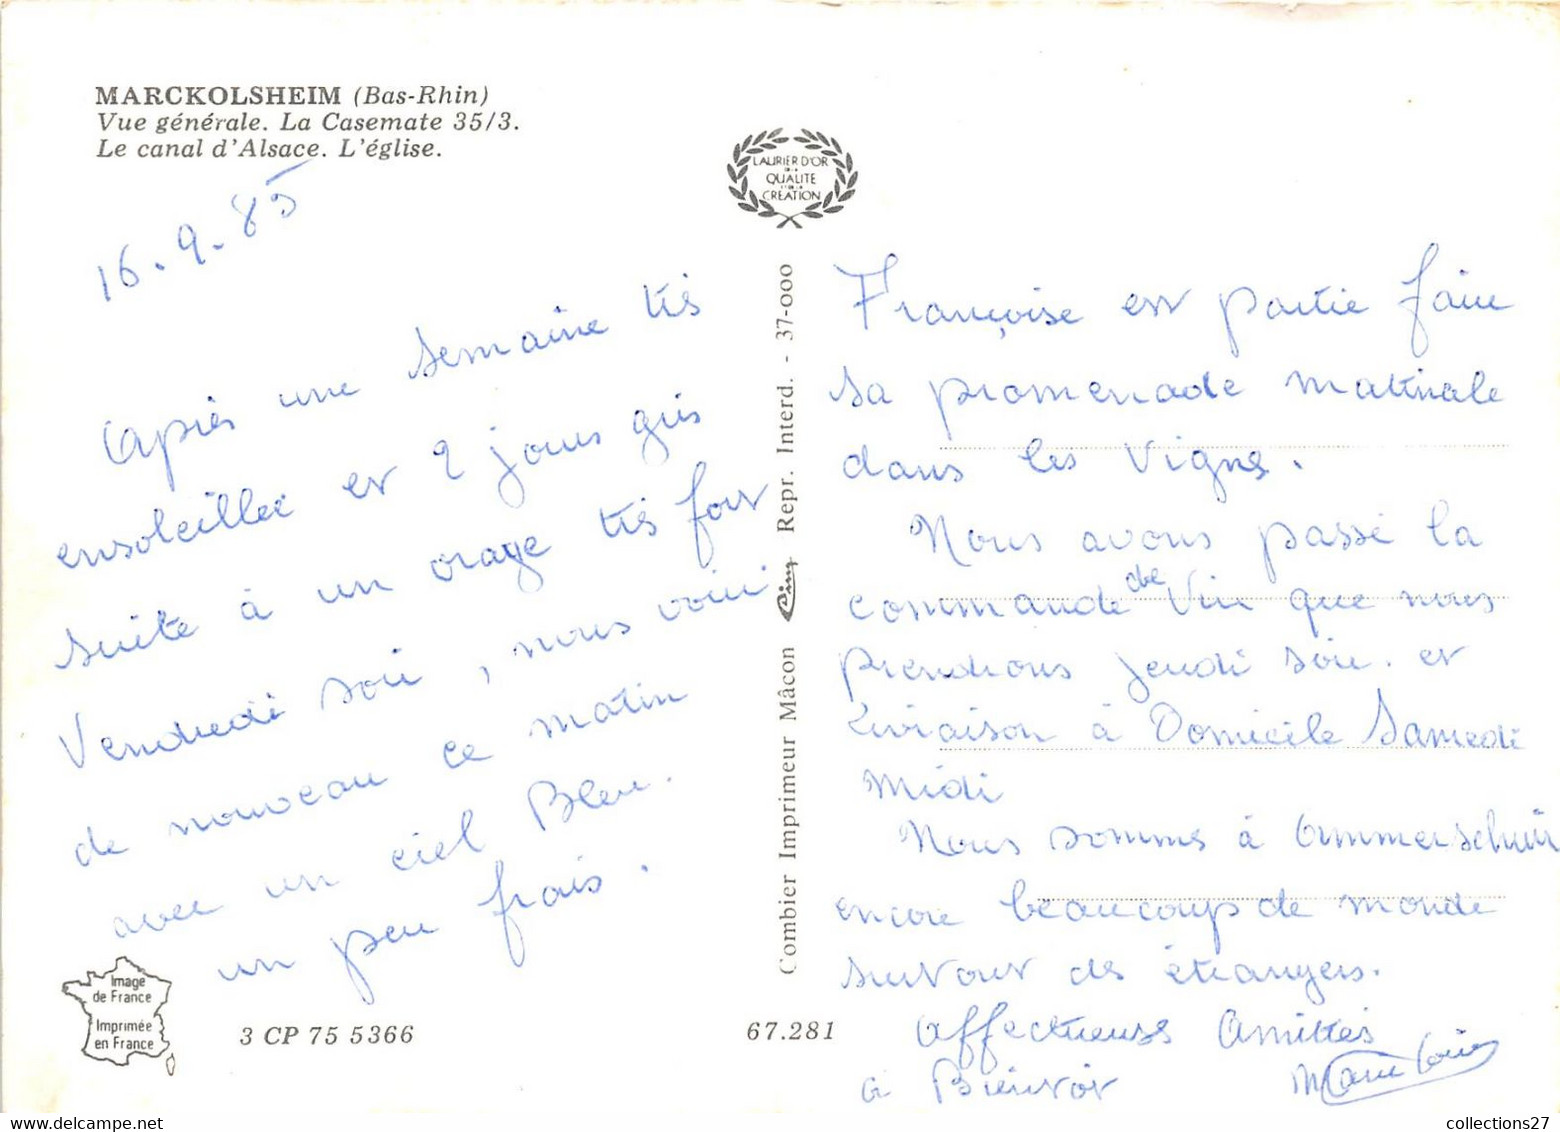 MARCKOLSHEIM (Bas-Rhin)
Vue générale. La Casemate 35/3.
Le canal d'Alsace. L'église.
16.9.85
Après une semaine très
ensoleillée et 2 jours gris
suite à un orage très fort
Vendredi soir, nous voici
de nouveau ce matin
avec un ciel Bleu.
un peu frais.
Image
de France
Imprimée
en France
3 CP 75 5366
LAURIER D'OR
DE LA
QUALITE
ET DE LA
CREATION
Combier Imprimeur Mâcon Cim Repr. Interd. - 37-000
67.281
Françoise est partie faire
sa promenade matinale
dans les Vignes.
Nous avons passé la
commande de Vin que nous
prendrons jeudi soir. et
Livraison à Domicile Samedi
midi
Nous sommes à Ammerschwir
encore beaucoup de monde
surtout des étrangers.
Affectueuses Amitiés
a Bientôt Marie Louise
collections27